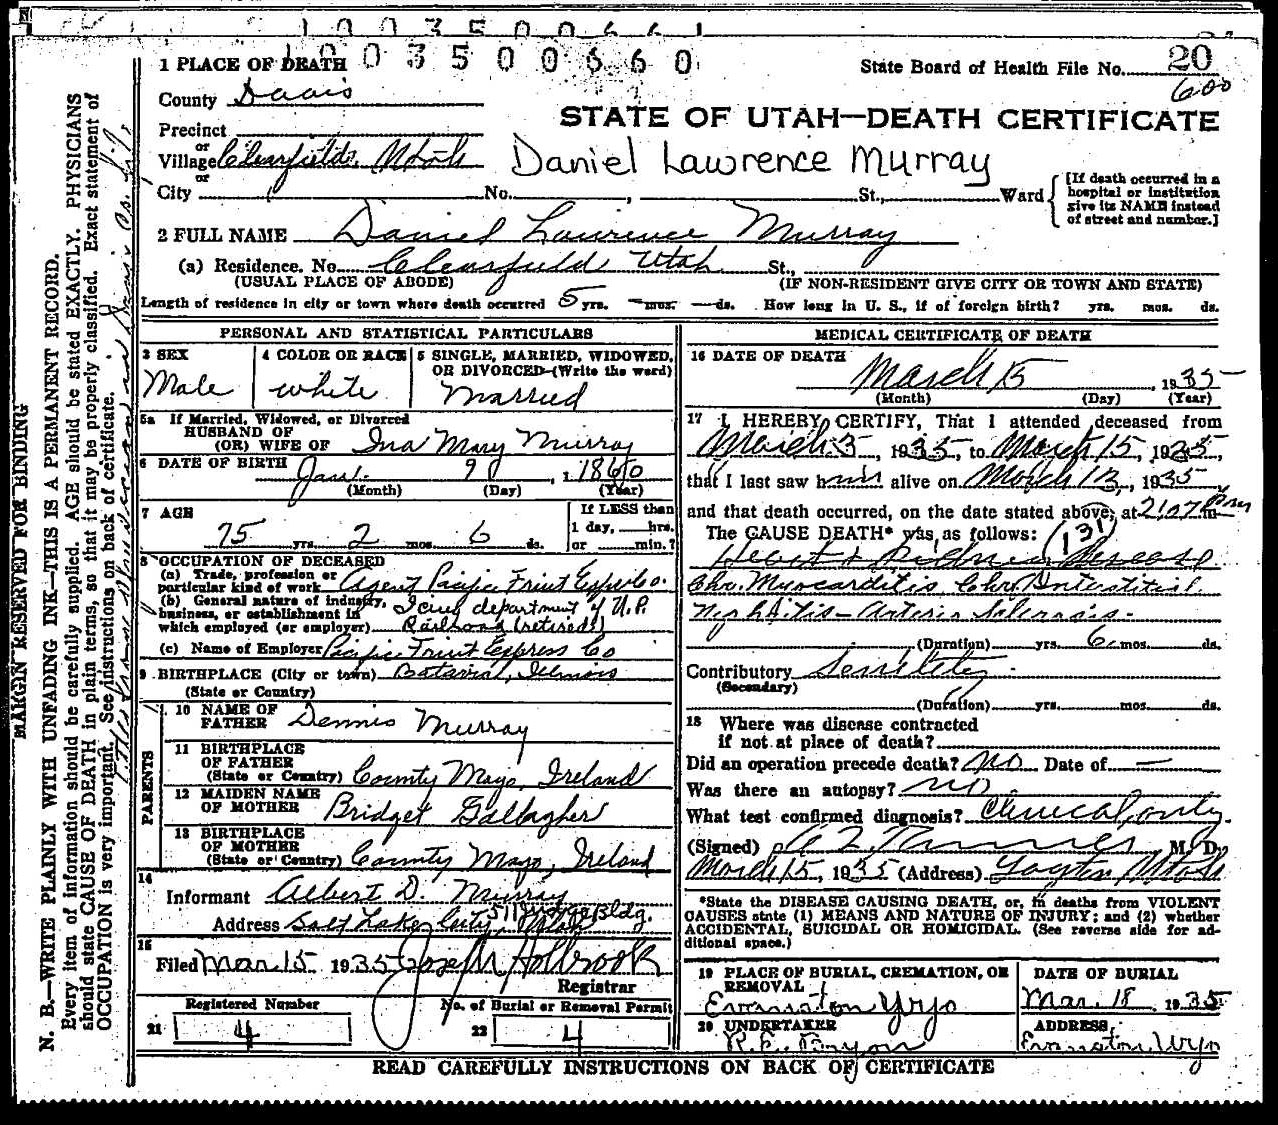 1003500661
1003500660
1 PLACE OF DEATH
State Board of Health File No. 20
600
County Davis
STATE OF UTAH—DEATH CERTIFICATE
Precinct
or
Village Clearfield, Utah
Daniel Lawrence Murray
or
City No. , St., Ward
[If death occurred in a
hospital or institution
give its NAME instead
of street and number.]
2 FULL NAME Daniel Lawrence Murray
(a) Residence. No. Clearfield Utah St.,
(USUAL PLACE OF ABODE) (IF NON-RESIDENT GIVE CITY OR TOWN AND STATE)
Length of residence in city or town where death occurred 5 yrs. — mos. — ds. How long in U. S., if of foreign birth? yrs. mos. ds.
PERSONAL AND STATISTICAL PARTICULARS
3 SEX
Male
4 COLOR OR RACE
white
5 SINGLE, MARRIED, WIDOWED,
OR DIVORCED (Write the word)
Married
5a If Married, Widowed, or Divorced
HUSBAND OF
(OR) WIFE OF Ina Mary Murray
6 DATE OF BIRTH Jan. 9, 1860
(Month) (Day) (Year)
7 AGE
75 yrs. 2 mos. 6 ds.
If LESS than
1 day, hrs.
or min.?
8 OCCUPATION OF DECEASED
(a) Trade, profession or
particular kind of work Agent Pacific Fruit Exp. Co.
(b) General nature of industry,
business, or establishment in
which employed (or employer)
Icing department of U.P.
Railroad (retired)
(c) Name of Employer Pacific Fruit Express Co
9 BIRTHPLACE (City or town) Batavia, Illinois
(State or Country)
PARENTS
10 NAME OF
FATHER Dennis Murray
11 BIRTHPLACE
OF FATHER
(State or Country) County Mayo, Ireland
12 MAIDEN NAME
OF MOTHER Bridget Gallagher
13 BIRTHPLACE
OF MOTHER
(State or Country) County Mayo, Ireland
14
Informant Albert D. Murray
511 Judge Bldg.
Address Salt Lake City, Utah
15
Filed Mar. 15 1935 Joseph Holbrook
Registrar
Registered Number No. of Burial or Removal Permit
21 4 22 4
MEDICAL CERTIFICATE OF DEATH
16 DATE OF DEATH
March 15, 1935
(Month) (Day) (Year)
17 I HEREBY CERTIFY, That I attended deceased from
March 3, 1935, to March 15, 1935,
that I last saw him alive on March 13, 1935
and that death occurred, on the date stated above, at m
The CAUSE DEATH* was as follows: (131)
Heart & Kidney Disease
Chr. Myocarditis Chr. Interstitial
Nephritis - Arterio Sclerosis.
(Duration) yrs. 6 mos. ds.
Contributory Senility.
(Secondary)
(Duration) yrs. mos. ds.
18 Where was disease contracted
if not at place of death?
Did an operation precede death? No Date of —
Was there an autopsy? no
What test confirmed diagnosis? Clinical only.
(Signed) M. D.
March 15, 1935 (Address) Layton Utah
*State the DISEASE CAUSING DEATH, or, in deaths from VIOLENT
CAUSES state (1) MEANS AND NATURE OF INJURY; and (2) whether
ACCIDENTAL, SUICIDAL OR HOMICIDAL. (See reverse side for ad-
ditional space.)
19 PLACE OF BURIAL, CREMATION, OR
REMOVAL
Evanston Wyo
DATE OF BURIAL
Mar. 18 1935
20 UNDERTAKER
R.E. Bryon
ADDRESS,
Evanston, Wyo
READ CAREFULLY INSTRUCTIONS ON BACK OF CERTIFICATE
MARGIN RESERVED FOR BINDING
N. B.—WRITE PLAINLY WITH UNFADING INK—THIS IS A PERMANENT RECORD.
Every item of information should be carefully supplied. AGE should be stated EXACTLY. PHYSICIANS
should state CAUSE OF DEATH in plain terms, so that it may be properly classified. Exact statement of
OCCUPATION is very important. See instructions on back of certificate.